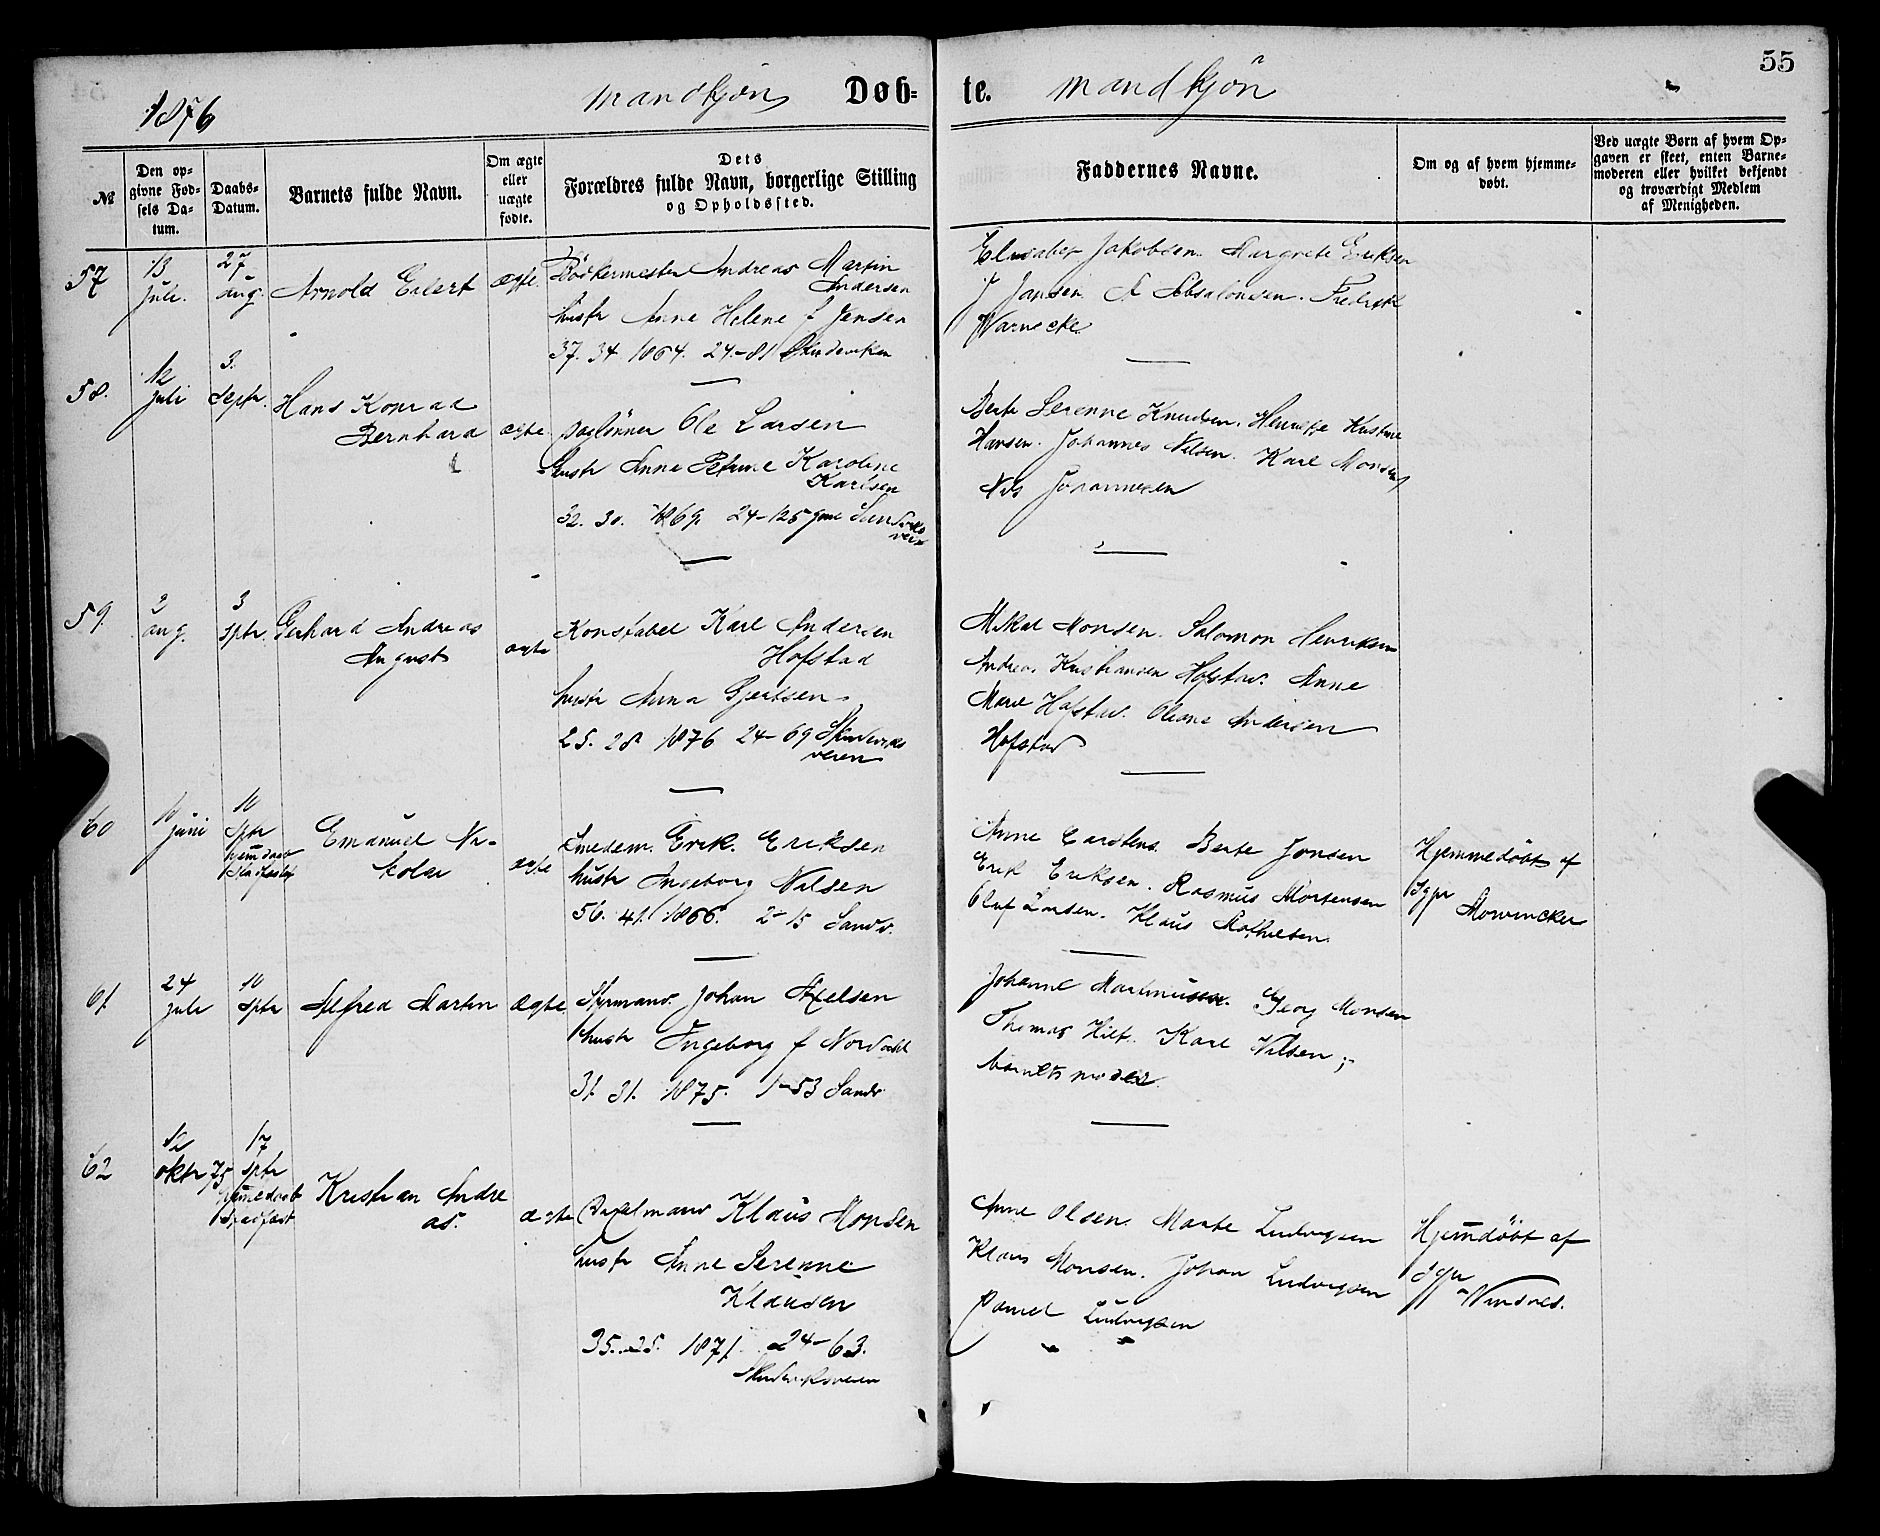 55
1876 Mandkjøn Døb- te. Mandkjøn
№
Den op-
givne Fød-
sels Da-
tum.
Daabs-
Datum.
Barnets fulde Navn.
Om ægte
eller
uægte
fødte.
Dets
Forældres fulde Navn, borgerlige Stilling
og Opholdssted.
Faddernes Navne.
Om og af hvem hjemme-
døbt.
Ved uægte Børn af hvem Op-
gaven er skeet, enten Barne-
moderen eller hvilket bekjendt
og troværdigt Medlem
af Menigheden.
57
13
Juli.
27
aug.
Arnold Eilert
ægte.
Bödkermester Andreas Martin
Andersen
hustr Anne Helene f Jensen
37. 34 1864. 24-81
Jakobsen. Margrete Eriksen
J Jansen A Absalonsen. Fredrik
Warnecke
58.
12
Juli
3.
Septr.
Hans Konrad
Bernhard
ægte
Daglönner Ole Larsen
hustr Anne Petrine Karoline
Karlsen
32. 30. 1869. 24-125
Berte Serenne Knudsen.
Hansen. Johannes Nilsen. Karl Monsen
Nils Johannesen
59.
2
aug.
3
Sptr.
Gerhard Andreas
August
ægte
Konstabel Karl Andersen
Hofstad
hustr Anna Gjertsen
25. 28 1876 24-69 Skudeviks
veien
Mikal Monsen. Salomon Henriksen
Andreas Kristiansen Hofstad. Anne
Marie Hofstad. Oleane Andersen
Hofstad
60
10
Juni
10
Sptr
hjemdøbt
Stadfæstet
Emanuel Ni-
kolai
ægte
Smedem. Erik Eriksen
hustr Ingeborg Nilsen
56. 41. 1866. 2-15 Sandv.
Anne Carstens. Berte Jonsen
Erik Eriksen. Rasmus Mortensen
Oluf Larsen. Klaus Mathiesen.
Hjemmedöbt af
Sgpr Mowinckel
61.
24
Juli
10
Sptr
Alfred Martin
ægte
Styrmand Johan Axelsen
hustr Ingeborg f Nordahl
31. 31. 1875. 1-53 Sandv
Johanne Martinusen. Georg Monsen
Thomas Karl Nilsen,
barnets moder.
62
12
oktr 75
17
Sptr
hjemmedøbt
Stadfæst
Kristian Andre
as.
ægte
Klaus Monsen
hustr Anne Serenne
Klausen
35. 25. 1871. 24-63.
Skudeviksveien
Anne Olsen. Marte Ludvigsen
Klaus Monsen. Johan Ludvigsen
Daniel Ludvigsen
Hjemdöbt af
Sgpr